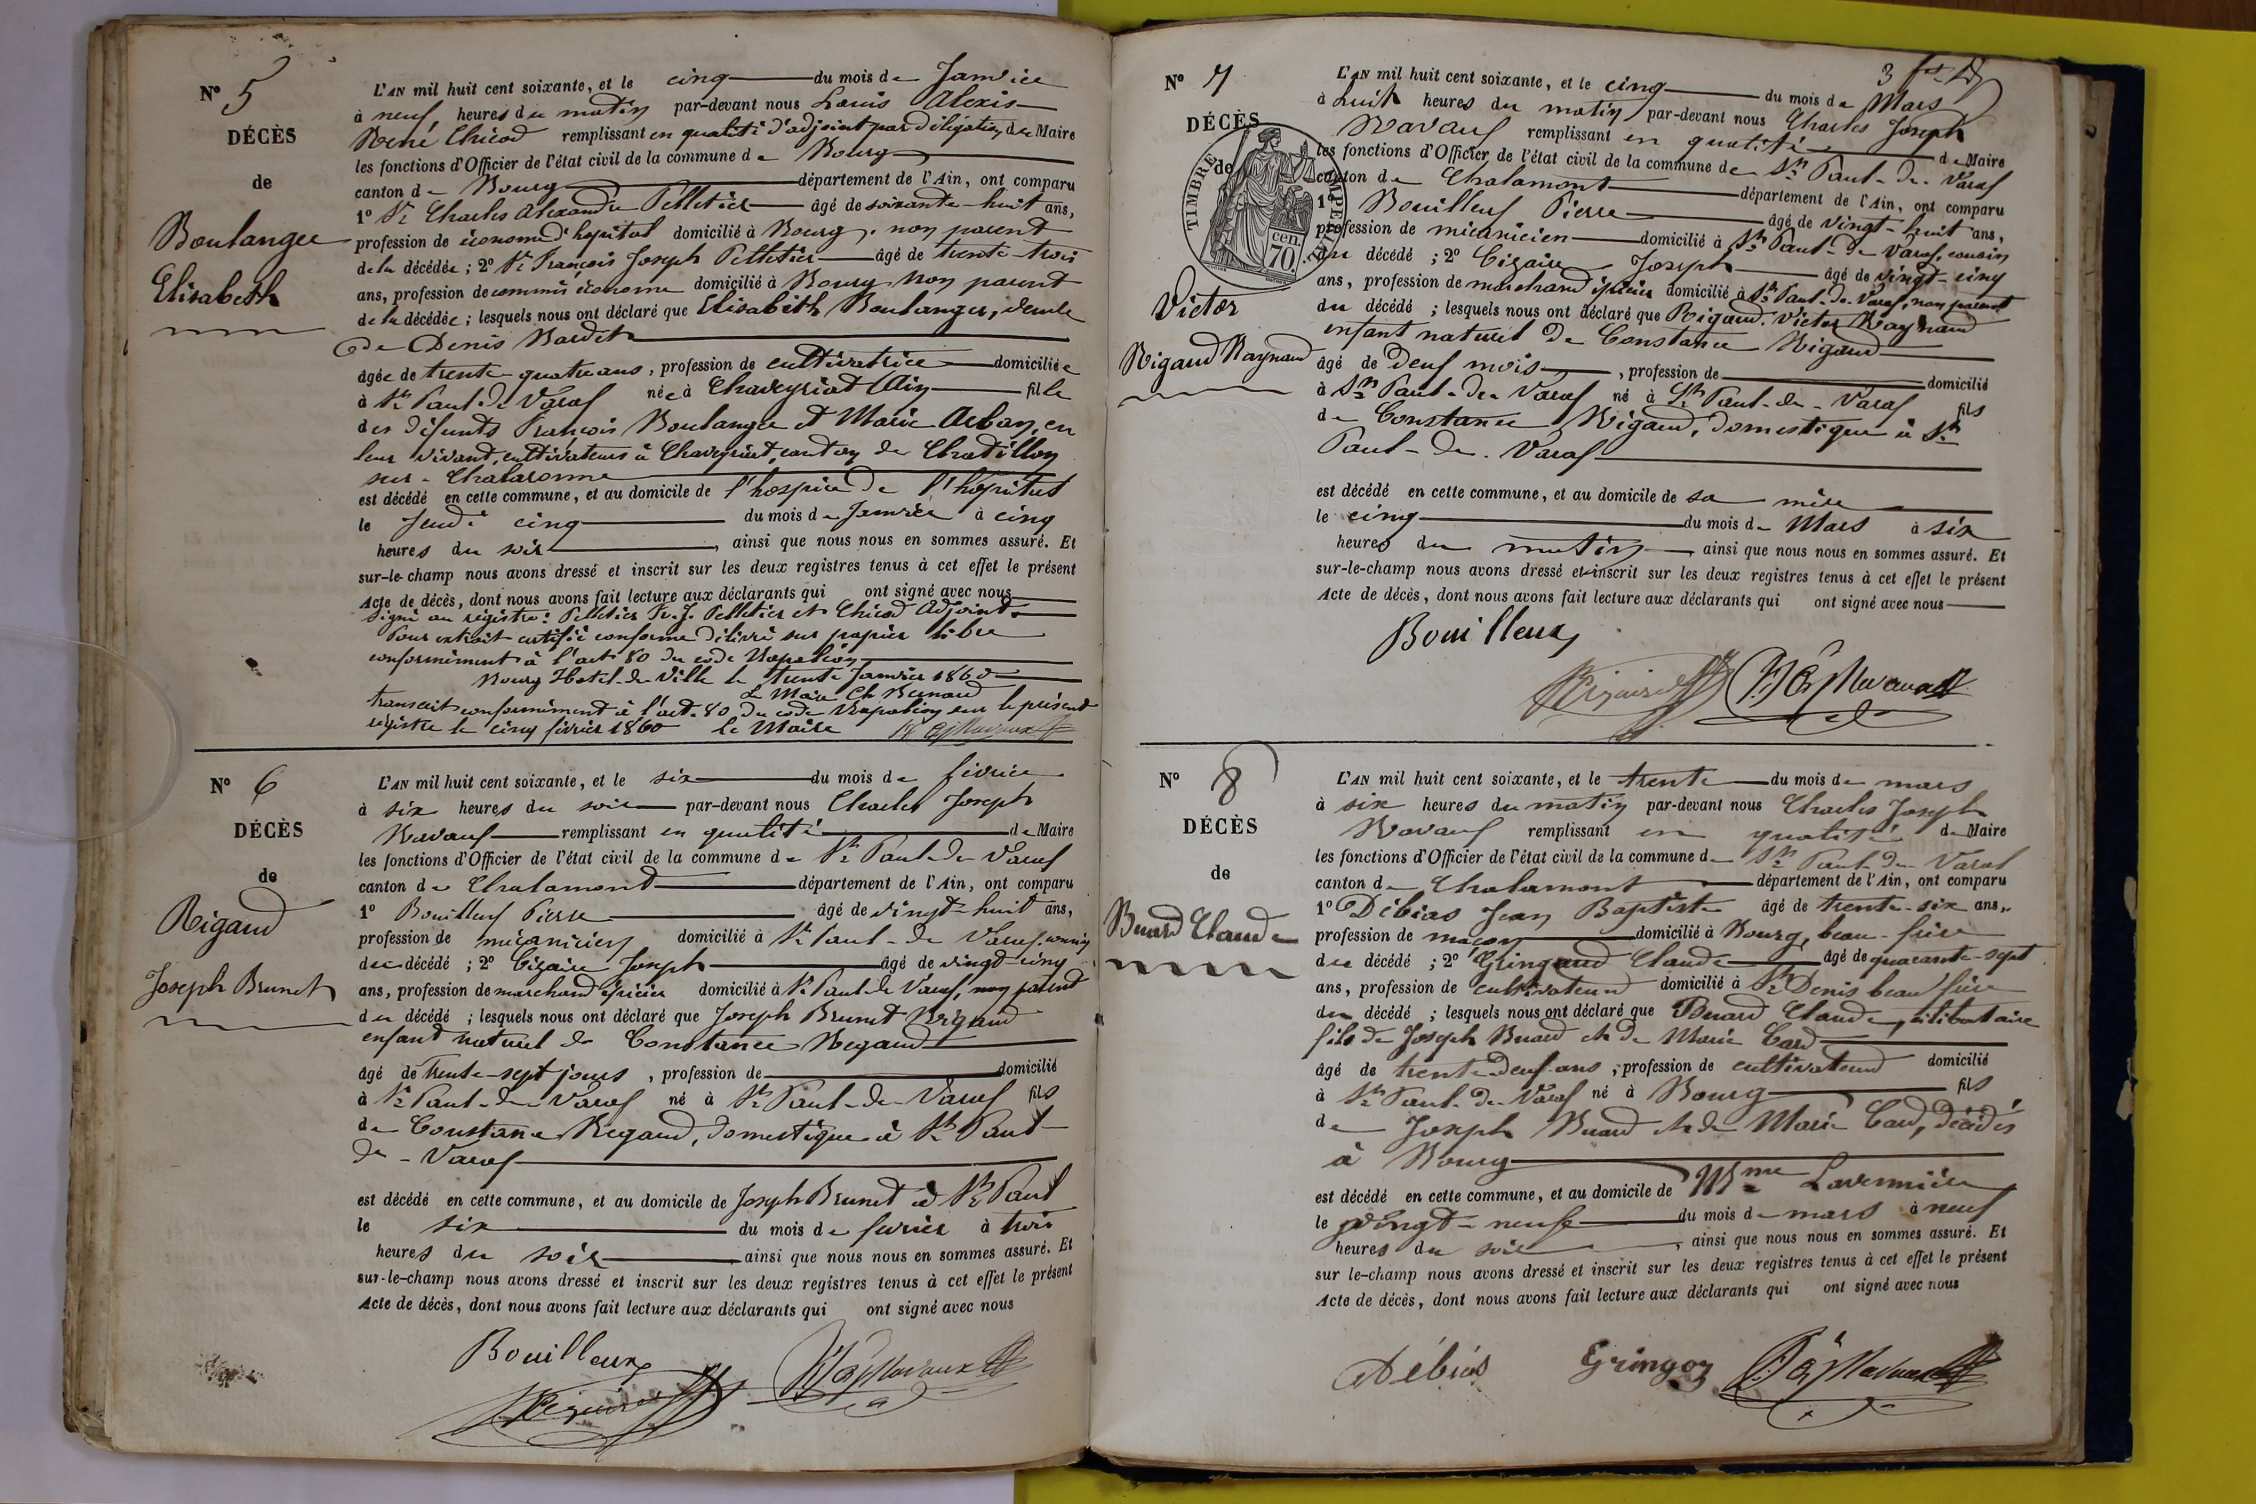 N° 5
DÉCÈS
de
Boulanger
Elisabeth
L'AN mil huit cent soixante, et le cinq du mois de Janvier
à neuf heures du matin par-devant nous Louis Alexis
René Chicod remplissant en qualité d'adjoint par délégation de Maire
les fonctions d'Officier de l'état civil de la commune de Bourg
canton de Bourg département de l'Ain, ont comparu
1° Sr Charles Alexandre Pelletier âgé de soixante-huit ans,
profession de économe d'hopital domicilié à Bourg, non parent
de la décédée; 2° Sr François Joseph Pelletier âgé de trente-trois
ans, profession de commis économe domicilié à Bourg non parent
de la décédée; lesquels nous ont déclaré que Elisabeth Boulanger, veuve
de Denis
âgée de trente-quatre ans, profession de cultivatrice domiciliée
à St Paul de Varax née à Chaveyriat (Ain) fille
des défunts François Boulanger et Marie Arban, en
leur vivant, cultivateurs à Chaveyriat, canton de Chatillon
sur-Chalaronne
est décédé en cette commune, et au domicile de l'hospice de l'hôpital
le Jeudi cinq du mois de Janvier à cinq
heures du soir, ainsi que nous nous en sommes assuré. Et
sur-le-champ nous avons dressé et inscrit sur les deux registres tenus à cet effet le présent
Acte de décès, dont nous avons fait lecture aux déclarants qui ont signé avec nous
Signé au registre: Pelletier Fr. J. Pelletier et Chicod Adjoint.
Pour extrait certifié conforme délivré sur papier libre
conformément à l'art 80 du code Napoléon
Bourg Hotel-de-Ville le trente Janvier 1860
Le Maire Ch Bernard
transcrit conformément à l'art. 80 du code Napoléon sur le présent
registre le cinq février 1860 le Maire
N° 6
DÉCÈS
de
Rigaud
Joseph Brunet
L'AN mil huit cent soixante, et le six du mois de février
à six heures du soir par-devant nous Charles Joseph
Navaux remplissant en qualité de Maire
les fonctions d'Officier de l'état civil de la commune de St Paul-de-Varax
canton de Chalamont département de l'Ain, ont comparu
1° Bouilleux Pierre âgé de vingt-huit ans,
profession de mécanicien domicilié à St Paul-de Varax, cousin
du décédé; 2° Cizaire Joseph âgé de vingt-cinq
ans, profession de marchand épicier domicilié à St Paul-de Varax, non parent
du décédé; lesquels nous ont déclaré que Joseph Brunet Rigaud
enfant naturel de Constance Regaud
âgé de Trente-sept jours, profession de domicilié
à St Paul-de-Varax né à St Paul-de-Varax fils
de Constance Regaud, domestique à St Paul-
de-Varax
est décédé en cette commune, et au domicile de Joseph Brunet à St Paul
le six du mois de fevrier à trois
heures du soir ainsi que nous nous en sommes assuré. Et
sur-le-champ nous avons dressé et inscrit sur les deux registres tenus à cet effet le présent
Acte de décès, dont nous avons fait lecture aux déclarants qui ont signé avec nous
Bouilleux
N° 7
DÉCÈS
de
TIMBRE IMPERIAL
70 cen.
Victor
Rigaud Raynaud
L'AN mil huit cent soixante, et le cinq du mois de Mars
à huit heures du matin par-devant nous Charles Joseph
Navaux remplissant en qualité de Maire
les fonctions d'Officier de l'état civil de la commune de St Paul-de-Varax
canton de Chalamont département de l'Ain, ont comparu
1° Bouilleux Pierre âgé de vingt-huit ans,
profession de mécanicien domicilié à St Paul-de Varax, cousin
du décédé; 2° Cizaire Joseph âgé de vingt-cinq
ans, profession de marchand épicier domicilié à St Paul-de-Varax, non parent
du décédé; lesquels nous ont déclaré que Rigaud Victor Raynaud
enfant naturel de Constance Rigaud
âgé de deux mois, profession de domicilié
à St Paul-de-Varax né à St Paul-de-Varax fils
de Constance Rigaud, domestique à St
Paul-de-Varax
est décédé en cette commune, et au domicile de sa mère
le cinq du mois de Mars à six
heures du matin ainsi que nous nous en sommes assuré. Et
sur-le-champ nous avons dressé et inscrit sur les deux registres tenus à cet effet le présent
Acte de décès, dont nous avons fait lecture aux déclarants qui ont signé avec nous
Bouilleux
N° 8
DÉCÈS
de
Buard Claude
L'AN mil huit cent soixante, et le trente du mois de mars
à six heures du matin par-devant nous Charles Joseph
Navaux remplissant en qualité de Maire
les fonctions d'Officier de l'état civil de la commune de St Paul-de-Varax
canton de Chalamont département de l'Ain, ont comparu
1° Débias Jean Baptiste âgé de trente-six ans,
profession de maçon domicilié à Bourg, beau-frère
du décédé; 2° Gringaud Claude âgé de quarante-sept
ans, profession de cultivateur domicilié à St Denis beau frère
du décédé; lesquels nous ont déclaré que Buard Claude, célibataire
fils de Joseph Buard et de Marie Card
âgé de trente-deux ans, profession de cultivateur domicilié
à St Paul-de-Varax né à Bourg fils
de Joseph Buard et de Marie Card, décédés
à Bourg
est décédé en cette commune, et au domicile de Mme
le vingt-neuf du mois de mars à neuf
heures du soir, ainsi que nous nous en sommes assuré. Et
sur le-champ nous avons dressé et inscrit sur les deux registres tenus à cet effet le présent
Acte de décès, dont nous avons fait lecture aux déclarants qui ont signé avec nous
Débias Gringoz